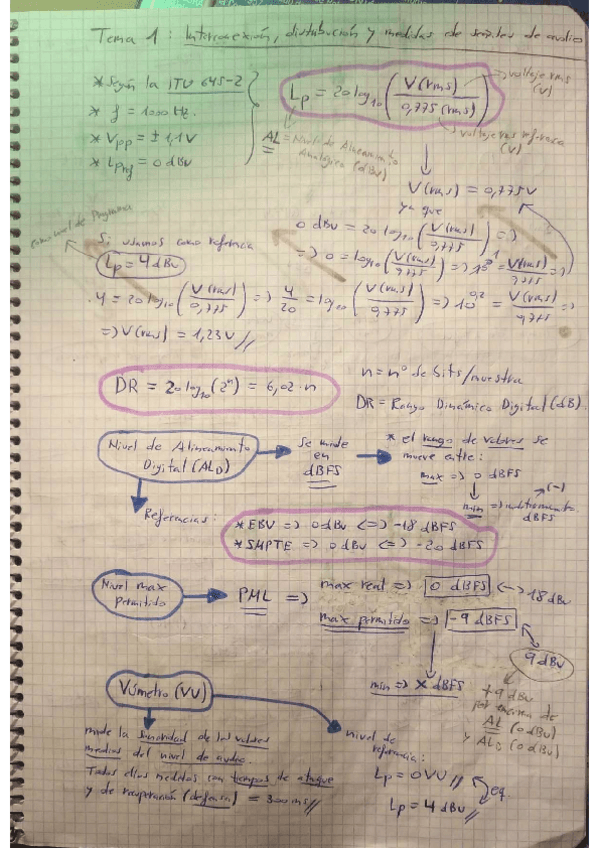 Tema 1: Interconexión, distribución y medidas de señales de audio
* Según la ITU 645-2
* f = 1000 Hz.
* Vpp = ± 1,1 V
* LPref = 0 dBu
Lp = 20 log10 (V(rms) / 0,775 (rms))
voltaje rms (V)
voltaje rms referencia (V)
AL = Nivel de Alineamiento Analógico (dBu)
V(rms) = 0,775V
ya que
0 dBu = 20 log10 (V(rms) / 0,775) =>
=> 0 = log10 (V(rms) / 0,775) => 10^0 = V(rms) / 0,775 =>
como nivel de Programa
Si usamos como referencia
Lp = 4 dBu
4 = 20 log10 (V(rms) / 0,775) => 4/20 = log10 (V(rms) / 0,775) => 10^0,2 = V(rms) / 0,775 =>
=> V(rms) = 1,23 V //
DR = 20 log10 (2^n) = 6,02 · n
n = nº de bits/muestra
DR = Rango Dinámico Digital (dB).
Nivel de Alineamiento Digital (ALD)
Se mide en dBFS
* el rango de valores se mueve entre:
max => 0 dBFS
(-)
min => dBFS
Referencias:
* EBU => 0 dBu <=> -18 dBFS
* SMPTE => 0 dBu <=> -20 dBFS
Nivel max Permitido
PML =>
max real => 0 dBFS <-> 18 dBu
max permitido => -9 dBFS
9 dBu
min => X dBFS
+9 dBu por encima de AL (0 dBu) y ALD (0 dBu)
Vúmetro (VU)
mide la sonoridad de los valores
medios del nivel de audio.
Todas ellas medidas con tiempos de ataque
y de recuperación = 300 ms //
nivel de referencia:
Lp = 0 VU //
eq.
Lp = 4 dBu //